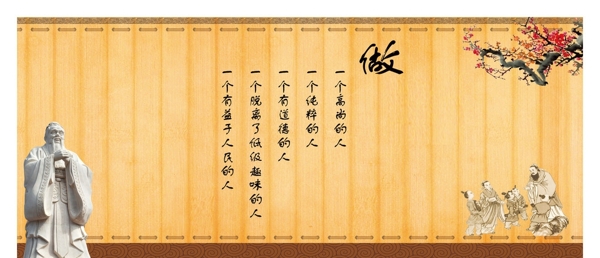 做
一个高尚的人
一个纯粹的人
一个有道德的人
一个脱离了低级趣味的人
一个有益于人民的人